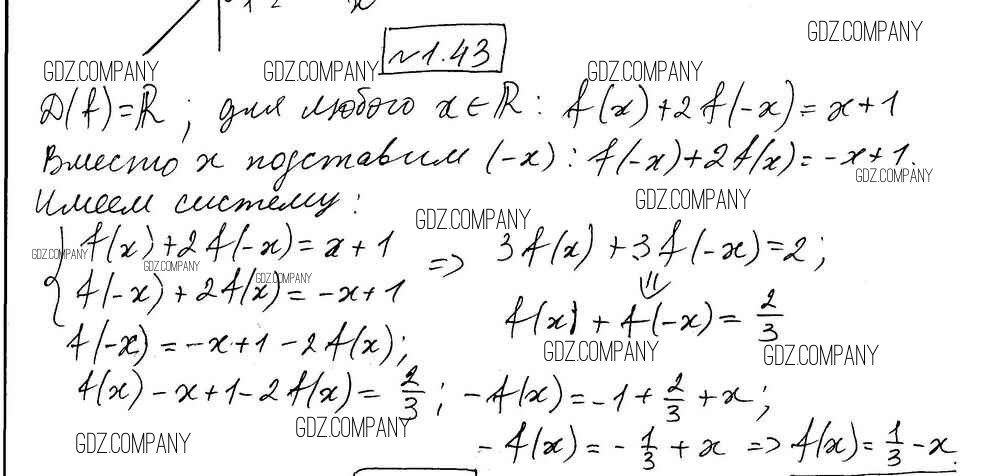 GDZ.COMPANY
№1.43
GDZ.COMPANY GDZ.COMPANY GDZ.COMPANY
D(f)=ℝ; для любого x∈ℝ: f(x)+2f(-x)=x+1
Вместо x подставим (-x): f(-x)+2f(x)=-x+1.
GDZ.COMPANY
Имеем систему:
GDZ.COMPANY GDZ.COMPANY
{ f(x)+2f(-x)=x+1 => 3f(x)+3f(-x)=2;
GDZ.COMPANY GDZ.COMPANY GDZ.COMPANY
f(-x)+2f(x)=-x+1
f(x)+f(-x)=2/3
f(-x)=-x+1-2f(x);
GDZ.COMPANY GDZ.COMPANY
f(x)-x+1-2f(x)=2/3; -f(x)=-1+2/3+x;
GDZ.COMPANY GDZ.COMPANY
-f(x)=-1/3+x => f(x)=1/3-x.